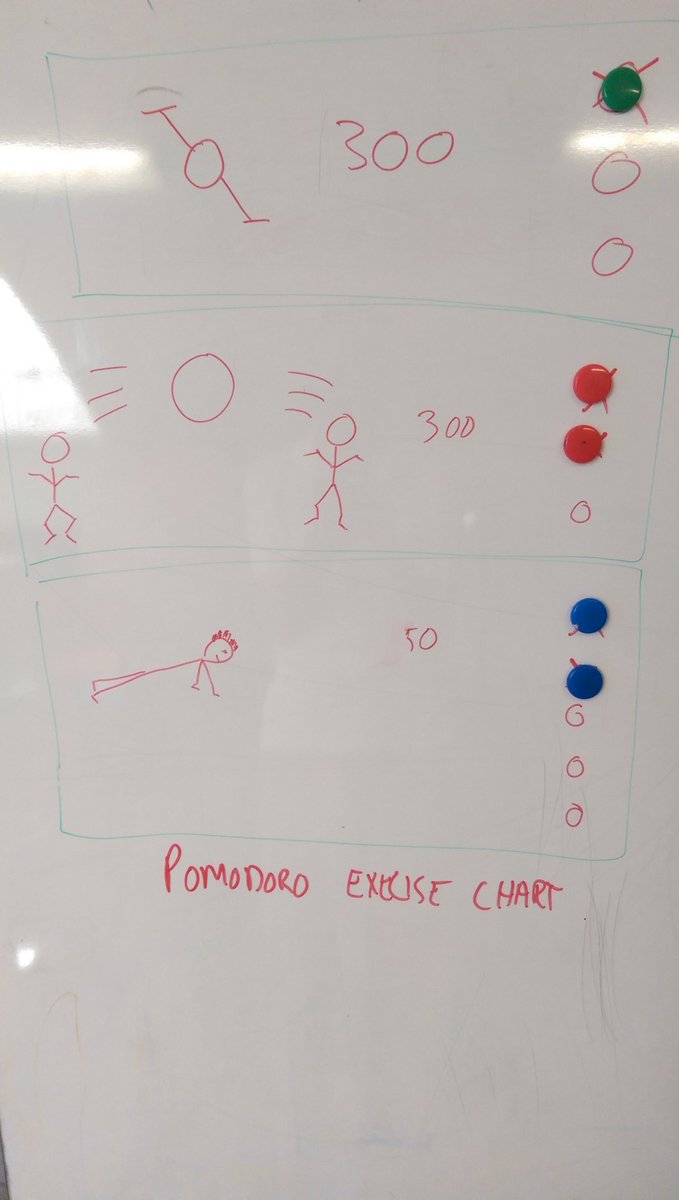 300
300
50
POMODORO EXECISE CHART